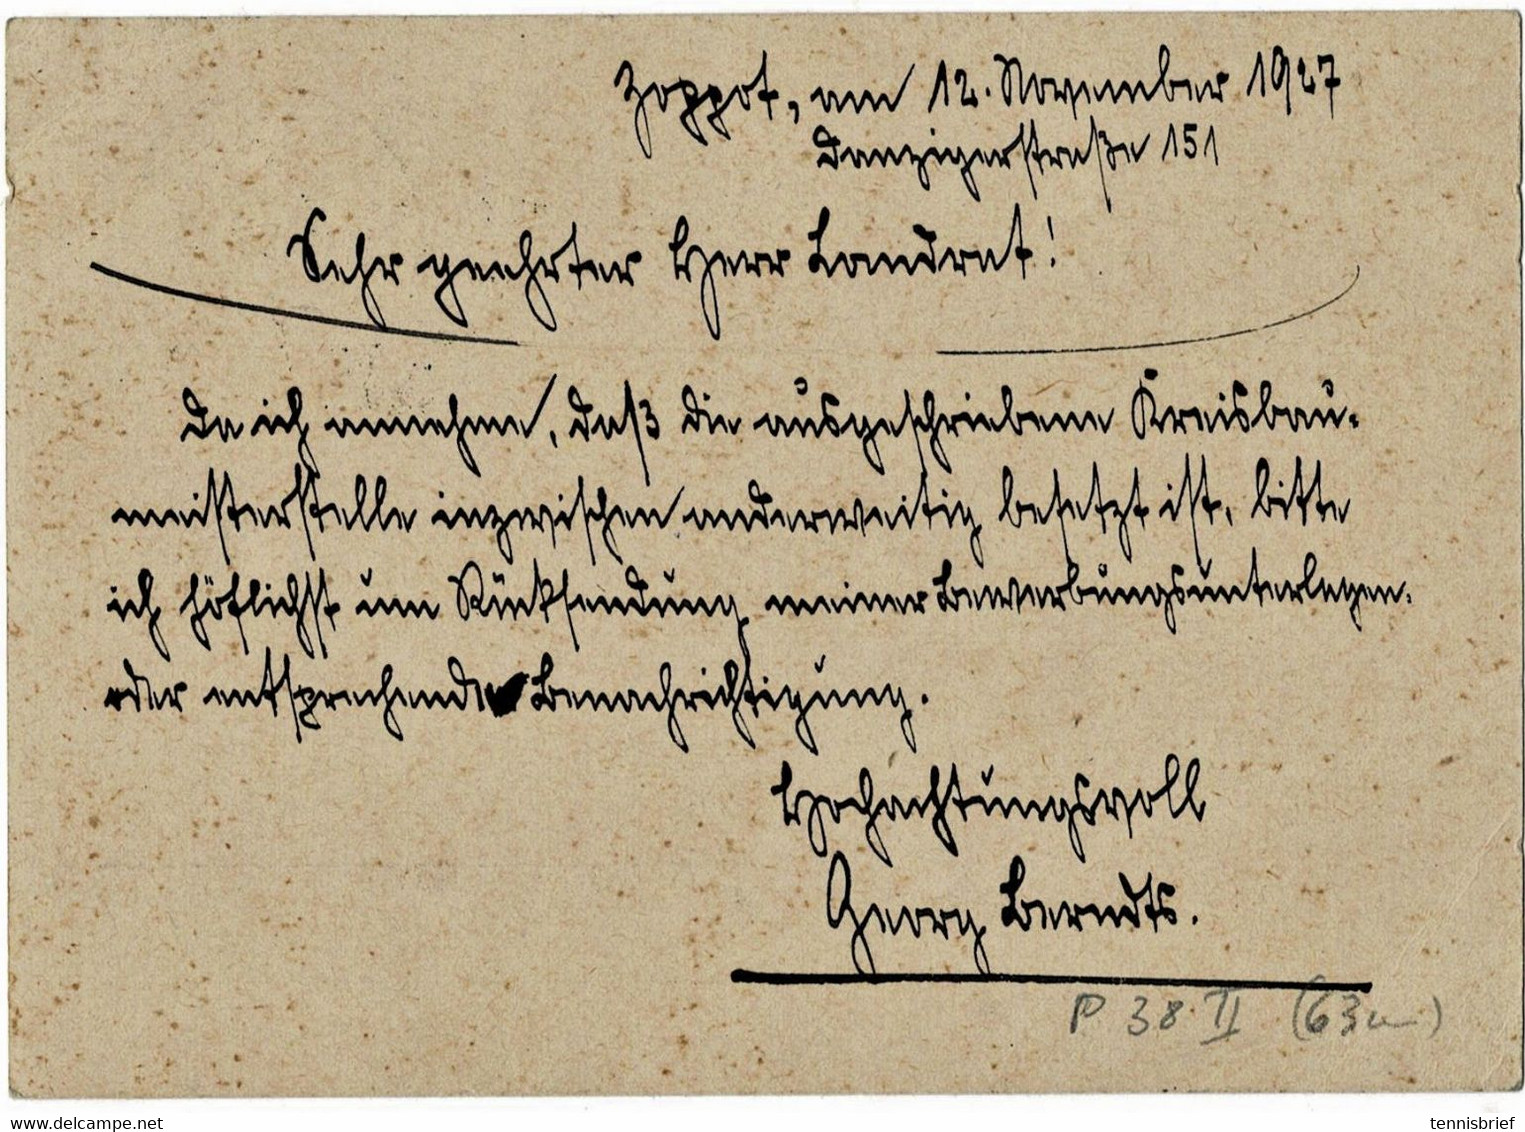 Zoppot, am 12. November 1927
Danzigerstraße 151
Sehr geehrter Herr Landrat!
Da ich annehme, daß die ausgeschriebene Kreisbau-
meisterstelle inzwischen anderweitig besetzt ist, bitte
ich höflichst um Rücksendung meiner Bewerbungsunterlagen.
oder entsprechende Benachrichtigung.
Hochachtungsvoll
Georg Berndts.
P 38 II (63
www.delcampe.net
tennisbrief